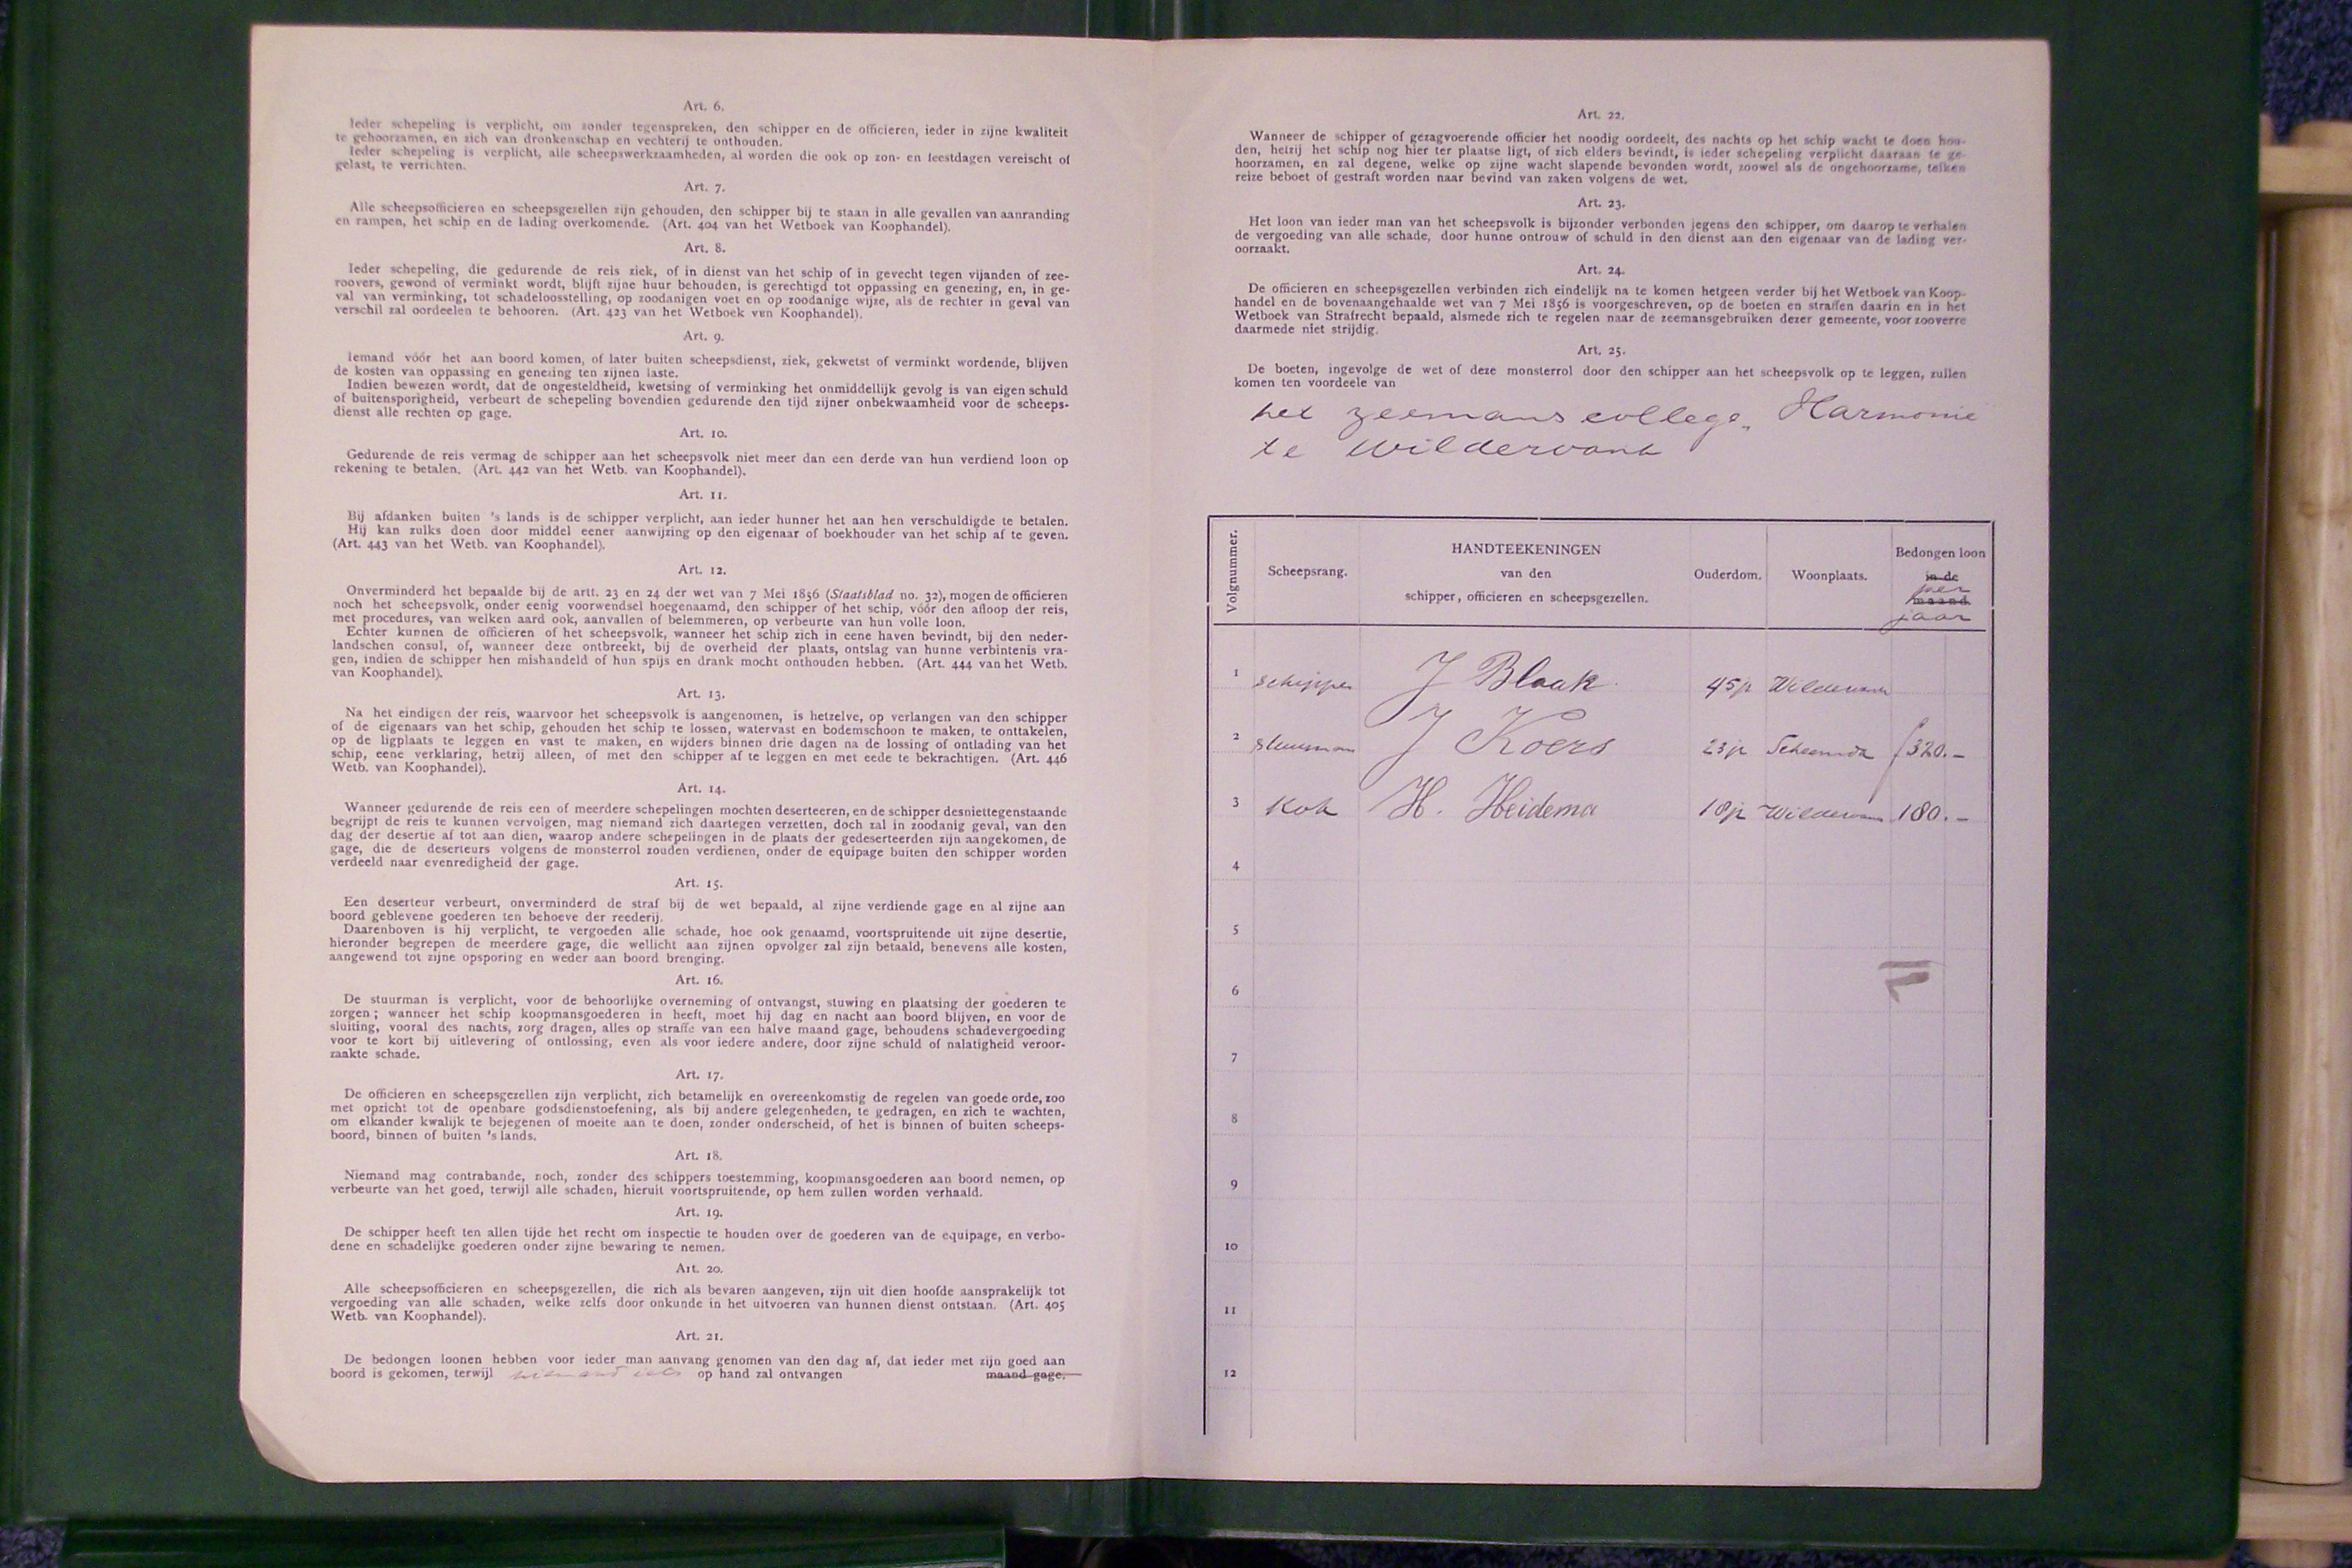 Art. 6.
Ieder schepeling is verplicht, om zonder tegenspreken, den schipper en de officieren, ieder in zijne kwaliteit
te gehoorzamen, en zich van dronkenschap en vechterij te onthouden.
Ieder schepeling is verplicht, alle scheepswerkzaamheden, al worden die ook op zon- en feestdagen vereischt of
gelast, te verrichten.
Art. 7.
Alle scheepsofficieren en scheepsgezellen zijn gehouden, den schipper bij te staan in alle gevallen van aanranding
en rampen, het schip en de lading overkomende. (Art. 404 van het Wetboek van Koophandel).
Art. 8.
Ieder schepeling, die gedurende de reis ziek, of in dienst van het schip of in gevecht tegen vijanden of zee-
roovers, gewond of verminkt wordt, blijft zijne huur behouden, is gerechtigd tot oppassing en genezing, en, in ge-
val van verminking, tot schadeloosstelling, op zoodanigen voet en op zoodanige wijze, als de rechter in geval van
verschil zal oordeelen te behooren. (Art. 423 van het Wetboek van Koophandel).
Art. 9.
Iemand vóór het aan boord komen, of later buiten scheepsdienst, ziek, gekwetst of verminkt wordende, blijven
de kosten van oppassing en genezing ten zijnen laste.
Indien bewezen wordt, dat de ongesteldheid, kwetsing of verminking het onmiddellijk gevolg is van eigen schuld
of buitensporigheid, verbeurt de schepeling bovendien gedurende den tijd zijner onbekwaamheid voor de scheeps-
dienst alle rechten op gage.
Art. 10.
Gedurende de reis vermag de schipper aan het scheepsvolk niet meer dan een derde van hun verdiend loon op
rekening te betalen. (Art. 442 van het Wetb. van Koophandel).
Art. 11.
Bij afdanken buiten 's lands is de schipper verplicht, aan ieder hunner het aan hen verschuldigde te betalen.
Hij kan zulks doen door middel eener aanwijzing op den eigenaar of boekhouder van het schip af te geven.
(Art. 443 van het Wetb. van Koophandel).
Art. 12.
Onverminderd het bepaalde bij de artt. 23 en 24 der wet van 7 Mei 1856 (Staatsblad no. 32), mogen de officieren
noch het scheepsvolk, onder eenig voorwendsel hoegenaamd, den schipper of het schip, vóór den afloop der reis,
met procedures, van welken aard ook, aanvallen of belemmeren, op verbeurte van hun volle loon.
Echter kunnen de officieren of het scheepsvolk, wanneer het schip zich in eene haven bevindt, bij den neder-
landschen consul, of, wanneer deze ontbreekt, bij de overheid der plaats, ontslag van hunne verbintenis vra-
gen, indien de schipper hen mishandeld of hun spijs en drank mocht onthouden hebben. (Art. 444 van het Wetb.
van Koophandel).
Art. 13.
Na het eindigen der reis, waarvoor het scheepsvolk is aangenomen, is hetzelve, op verlangen van den schipper
of de eigenaars van het schip, gehouden het schip te lossen, watervast en bodemschoon te maken, te onttakelen,
op de ligplaats te leggen en vast te maken, en wijders binnen drie dagen na de lossing of ontlading van het
schip, eene verklaring, hetzij alleen, of met den schipper af te leggen en met eede te bekrachtigen. (Art. 446
Wetb. van Koophandel).
Art. 14.
Wanneer gedurende de reis een of meerdere schepelingen mochten deserteeren, en de schipper desniettegenstaande
begrijpt de reis te kunnen vervolgen, mag niemand zich daartegen verzetten, doch zal in zoodanig geval, van den
dag der desertie af tot aan dien, waarop andere schepelingen in de plaats der gedeserteerden zijn aangekomen, de
gage, die de deserteurs volgens de monsterrol zouden verdienen, onder de equipage buiten den schipper worden
verdeeld naar evenredigheid der gage.
Art. 15.
Een deserteur verbeurt, onverminderd de straf bij de wet bepaald, al zijne verdiende gage en al zijne aan
boord geblevene goederen ten behoeve der reederij.
Daarenboven is hij verplicht, te vergoeden alle schade, hoe ook genaamd, voortspruitende uit zijne desertie,
hieronder begrepen de meerdere gage, die wellicht aan zijnen opvolger zal zijn betaald, benevens alle kosten,
aangewend tot zijne opsporing en weder aan boord brenging.
Art. 16.
De stuurman is verplicht, voor de behoorlijke overneming of ontvangst, stuwing en plaatsing der goederen te
zorgen; wanneer het schip koopmansgoederen in heeft, moet hij dag en nacht aan boord blijven, en voor de
sluiting, vooral des nachts, zorg dragen, alles op straffe van een halve maand gage, behoudens schadevergoeding
voor te kort bij uitlevering of ontlossing, even als voor iedere andere, door zijne schuld of nalatigheid veroor-
zaakte schade.
Art. 17.
De officieren en scheepsgezellen zijn verplicht, zich betamelijk en overeenkomstig de regelen van goede orde, zoo
met opzicht tot de openbare godsdienstoefening, als bij andere gelegenheden, te gedragen, en zich te wachten,
om elkander kwalijk te bejegenen of moeite aan te doen, zonder onderscheid, of het is binnen of buiten scheeps-
boord, binnen of buiten 's lands.
Art. 18.
Niemand mag contrabande, noch, zonder des schippers toestemming, koopmansgoederen aan boord nemen, op
verbeurte van het goed, terwijl alle schaden, hieruit voortspruitende, op hem zullen worden verhaald.
Art. 19.
De schipper heeft ten allen tijde het recht om inspectie te houden over de goederen van de equipage, en verbo-
dene en schadelijke goederen onder zijne bewaring te nemen.
Art. 20.
Alle scheepsofficieren en scheepsgezellen, die zich als bevaren aangeven, zijn uit dien hoofde aansprakelijk tot
vergoeding van alle schaden, welke zelfs door onkunde in het uitvoeren van hunnen dienst ontstaan. (Art. 405
Wetb. van Koophandel).
Art. 21.
De bedongen loonen hebben voor ieder man aanvang genomen van den dag af, dat ieder met zijn goed aan
boord is gekomen, terwijl niemand iets op hand zal ontvangen maand gage.
Art. 22.
Wanneer de schipper of gezagvoerende officier het noodig oordeelt, des nachts op het schip wacht te doen hou-
den, hetzij het schip nog hier ter plaatse ligt, of zich elders bevindt, is ieder schepeling verplicht daaraan te ge-
hoorzamen, en zal degene, welke op zijne wacht slapende bevonden wordt, zoowel als de ongehoorzame, telken
reize beboet of gestraft worden naar bevind van zaken volgens de wet.
Art. 23.
Het loon van ieder man van het scheepsvolk is bijzonder verbonden jegens den schipper, om daarop te verhalen
de vergoeding van alle schade, door hunne ontrouw of schuld in den dienst aan den eigenaar van de lading ver-
oorzaakt.
Art. 24.
De officieren en scheepsgezellen verbinden zich eindelijk na te komen hetgeen verder bij het Wetboek van Koop-
handel en de bovenaangehaalde wet van 7 Mei 1856 is voorgeschreven, op de boeten en straffen daarin en in het
Wetboek van Strafrecht bepaald, alsmede zich te regelen naar de zeemansgebruiken dezer gemeente, voor zooverre
daarmede niet strijdig.
Art. 25.
De boeten, ingevolge de wet of deze monsterrol door den schipper aan het scheepsvolk op te leggen, zullen
komen ten voordeele van
het zeemanscollege „Harmonie
te Wildervank
Volgnummer. Scheepsrang. HANDTEEKENINGEN van den schipper, officieren en scheepsgezellen. Ouderdom. Woonplaats. Bedongen loon in de maand
per
jaar
1 schipper J Blaak 45 jr Wildervank
2 stuurman J Koers 23 jr Scheemda f 320.-
3 Kok H. Heidema 18 jr Wildervank 180.-
4
5
6
7
8
9
10
11
12